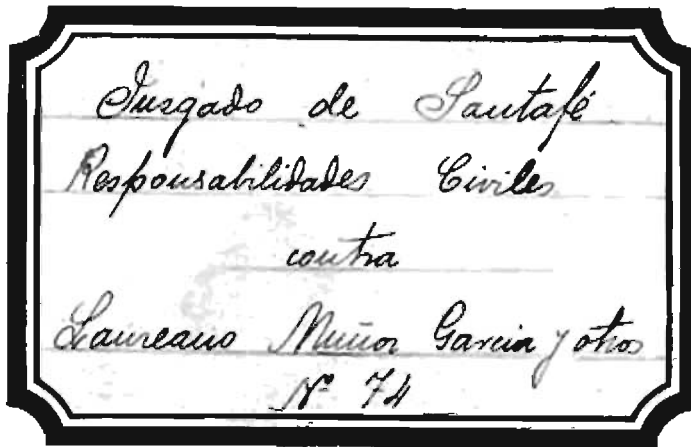 Juzgado de Santafé
Responsabilidades Civiles
contra
Laureano Muñoz Garcia y otros
Nº 74